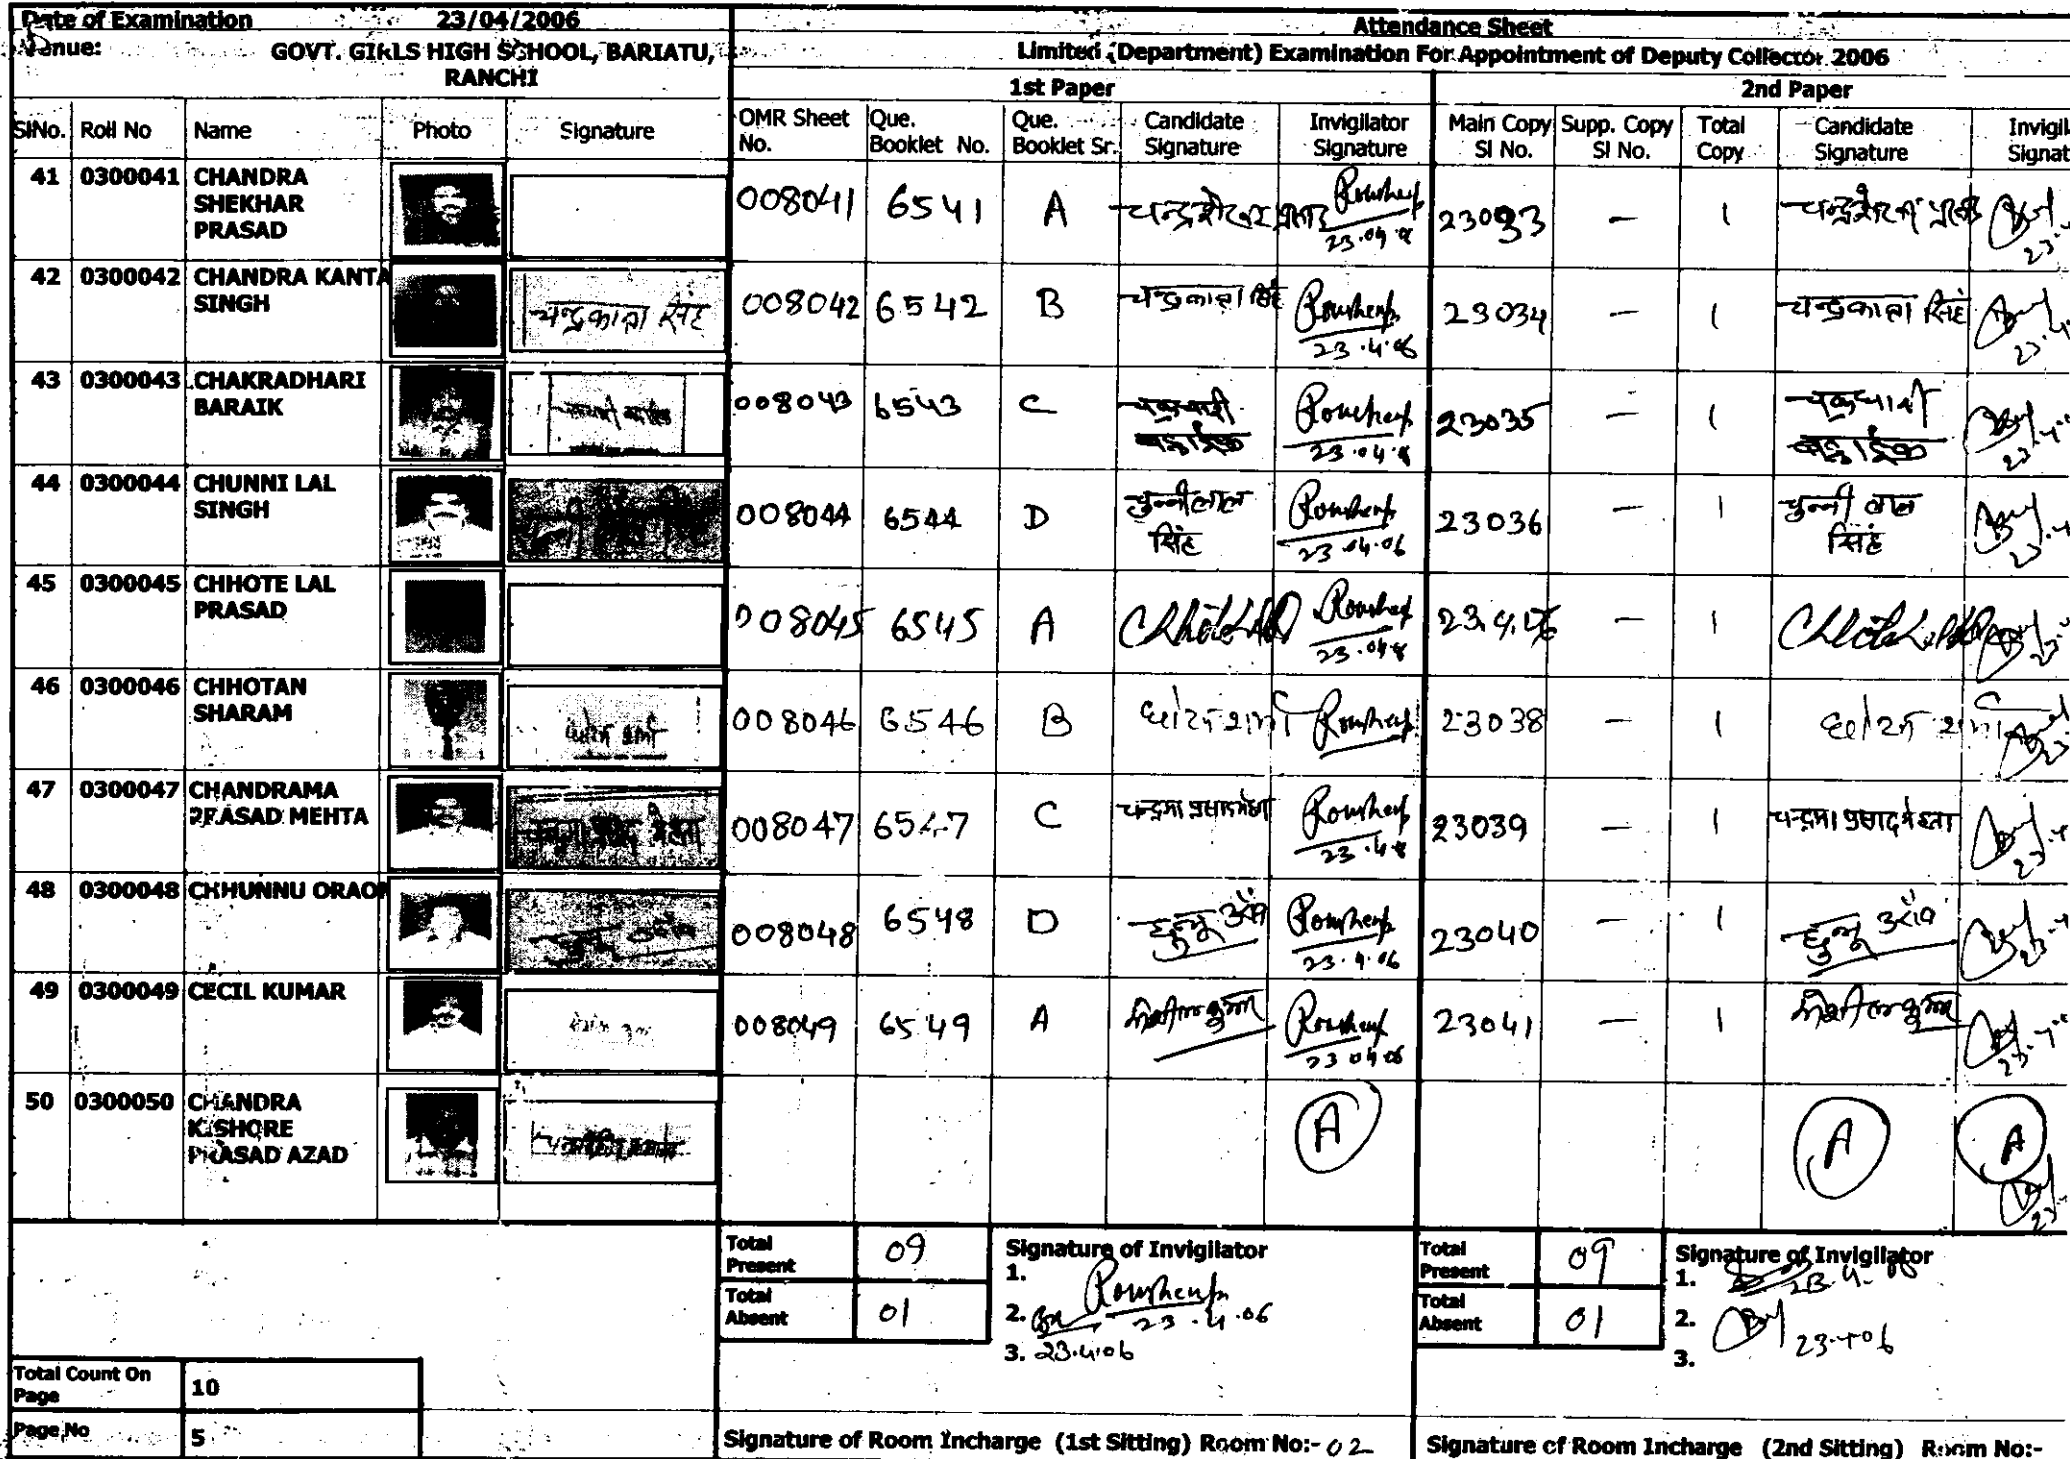 Date of Examination 23/04/2006
Venue: GOVT. GIRLS HIGH SCHOOL, BARIATU, RANCHI
Attendance Sheet
Limited (Department) Examination For Appointment of Deputy Collector 2006
1st Paper 2nd Paper
SlNo. Roll No Name Photo Signature OMR Sheet No. Que. Booklet No. Que. Booklet Sr. Candidate Signature Invigilator Signature Main Copy Sl No. Supp. Copy Sl No. Total Copy Candidate Signature Invigil Signat
41 0300041 CHANDRA SHEKHAR PRASAD 008041 6541 A चन्द्रशेखर प्रसाद 23.04.06 23033 - 1 चन्द्रशेखर प्रसाद
42 0300042 CHANDRA KANTA SINGH चन्द्रकान्त सिंह 008042 6542 B चन्द्रकान्त सिंह 23.4.06 23034 - 1 चन्द्रकान्त सिंह
43 0300043 CHAKRADHARI BARAIK 008043 6543 C चक्रधारी बड़ाईक 23.04.06 23035 - 1 चक्रधारी बड़ाईक
44 0300044 CHUNNI LAL SINGH 008044 6544 D चुन्नीलाल सिंह 23.04.06 23036 - 1 चुन्नी लाल सिंह
45 0300045 CHHOTE LAL PRASAD 008045 6545 A 23.04.06 23.4.06 - 1
46 0300046 CHHOTAN SHARAM छोटन शर्मा 008046 6546 B छोटन शर्मा 23038 - 1 छोटन शर्मा
47 0300047 CHANDRAMA PRASAD MEHTA चन्द्रमा प्रसाद मेहता 008047 6547 C चन्द्रमा प्रसाद मेहता 23.4.06 23039 - 1 चन्द्रमा प्रसाद मेहता
48 0300048 CHHUNNU ORAON 008048 6548 D छुन्नू उराँव 23.4.06 23040 - 1 छुन्नू उराँव
49 0300049 CECIL KUMAR 008049 6549 A 23.04.06 23041 - 1
50 0300050 CHANDRA KISHORE PRASAD AZAD A A A
Total Present 09 Signature of Invigilator Total Present 09 Signature of Invigilator
1. 1. 23.4.06
Total Absent 01 2. 23.4.06 Total Absent 01 2. 23.4.06
3. 23.4.06 3.
Total Count On Page 10
Page No 5
Signature of Room Incharge (1st Sitting) Room No:- 02 Signature of Room Incharge (2nd Sitting) Room No:-